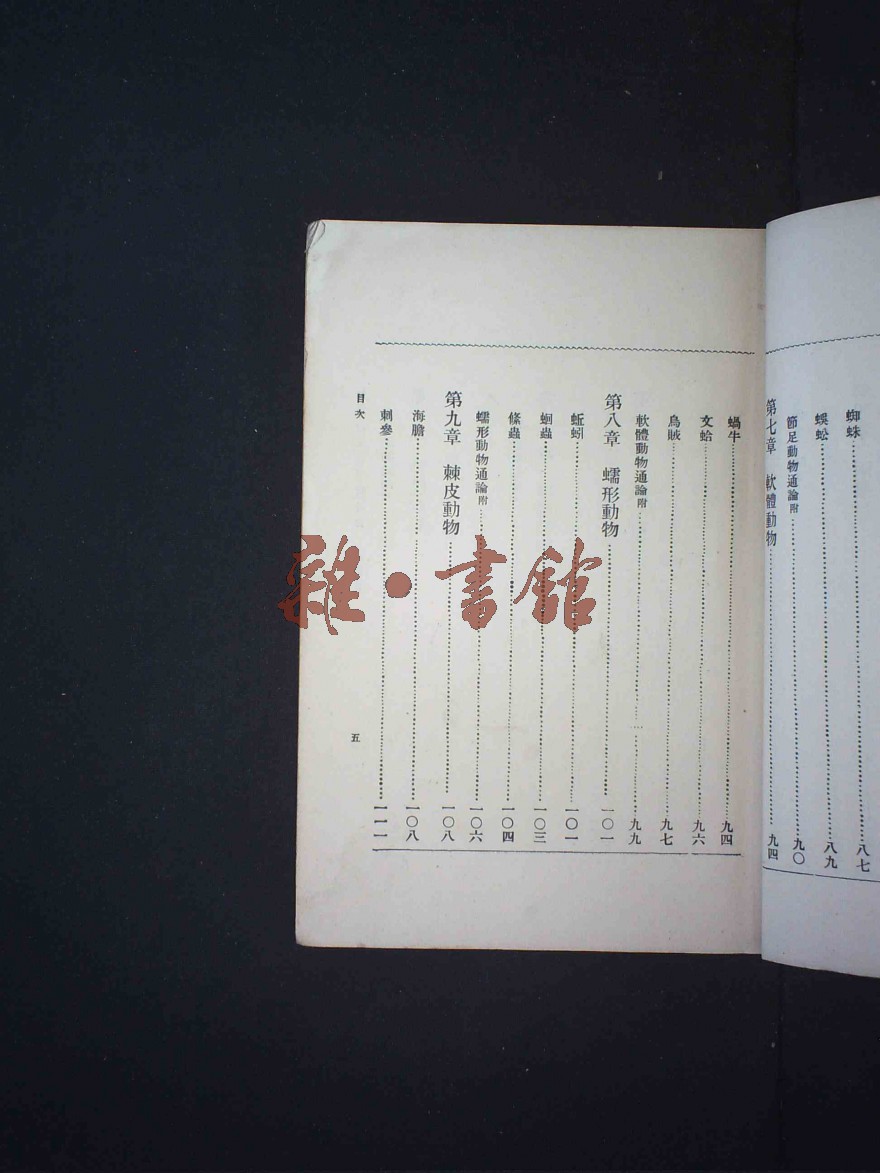 蜘蛛………八七
蜈蚣………八九
節足動物通論附………九〇
第七章 軟體動物………九四
蝸牛………九四
文蛤………九六
烏賊………九七
軟體動物通論附………九九
第八章 蠕形動物………一〇一
蚯蚓………一〇一
蛔蟲………一〇三
絛蟲………一〇四
蠕形動物通論附………一〇六
第九章 棘皮動物………一〇八
海膽………一〇八
刺參………一一一
目次
五
雜·書館